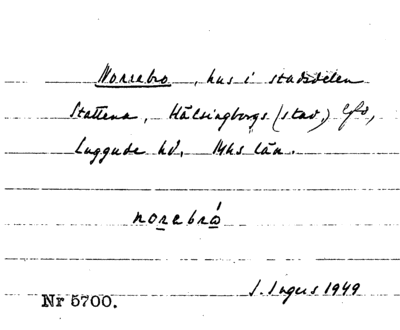 Norrebro, hus i stadsdelen
Stattena, Hälsingborgs (stad,) Lfs,
Luggude hd, Mhs län.
norebró
J. Ingers 1949
Nr 5700.